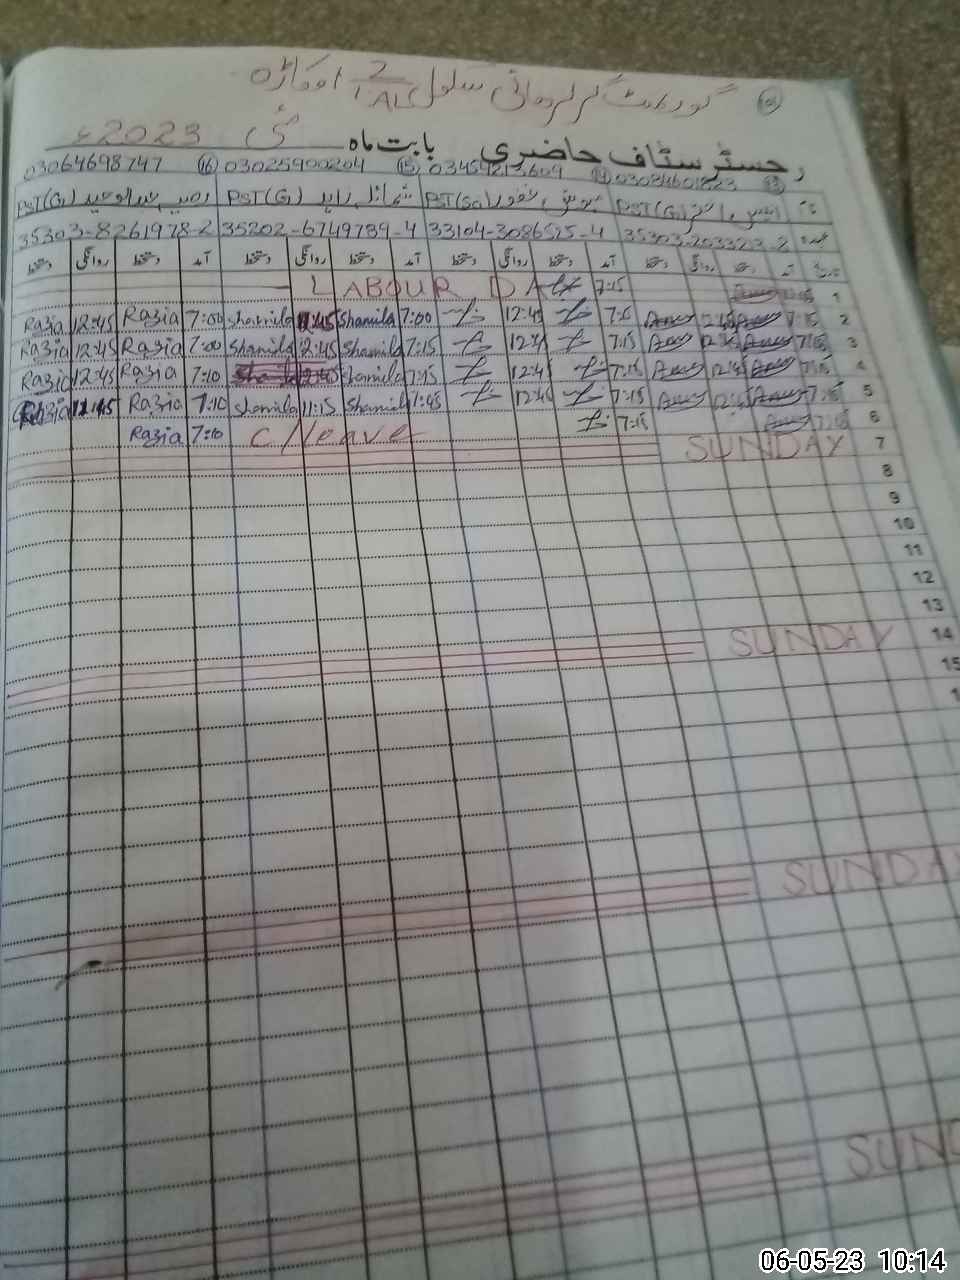 گورنمنٹ گرلز ہائی سکول 2/1AL اوکاڑہ
رجسٹر سٹاف حاضری بابت ماہ مئی 2023ء
03064698747 (16) 03025900204 (15) 03454213609 (14)
PST(G) PST(G) شمائلہ زاہد PST(Sc) PST(G)
35303-8261978-2 35202-6749739-4 33104-3086525-4 35303-203323-2
عہدہ
دستخط روانگی دستخط آمد دستخط روانگی دستخط آمد دستخط روانگی دستخط آمد دستخط روانگی دستخط آمد تاریخ
LABOUR DAY 7:15 1
Razia 12:45 Razia 7:00 Shamila 11:45 Shamila 7:00 12:45 7:15 12:45 7:15 2
Razia 12:45 Razia 7:00 Shamila 12:45 Shamila 7:15 12:45 7:15 12:45 7:15 3
Razia 12:45 Razia 7:10 Shamila 12:45 Shamila 7:15 12:45 7:15 12:45 7:15 4
Razia 11:45 Razia 7:10 Shamila 11:15 Shamila 7:45 12:45 7:15 12:45 7:15 5
Razia 7:10 C/leave 7:15 7:15 6
SUNDAY 7
8
9
10
11
12
13
SUNDAY 14
15
SUNDAY
06-05-23 10:14